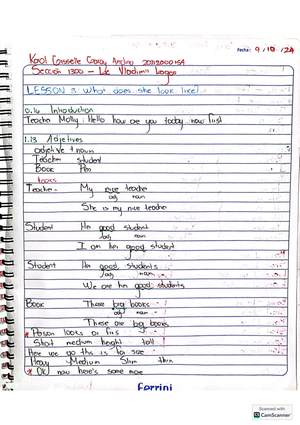 Fecha: 9/10/24
Sección 1300 - Lic Vladimir
LESSON 3: What does she look like?
0.14 Introduction
Teacher Molly: Hello how are you today now first
1.13 Adjetives
adjetive + noun
Teacher student
Book Pen
Teacher - My nice teacher
adj noun
She is my nice teacher
Student Her good student
adj noun
I am her good student
Student Her good students
adj noun
We are her good students
Book These big books
adj noun
These are big books
Person looks or first
Short medium height tall
Here we go this is for size
Heavy Medium Slim thin
Ok now here's some more
Ferrini
Scanned with
CS CamScanner